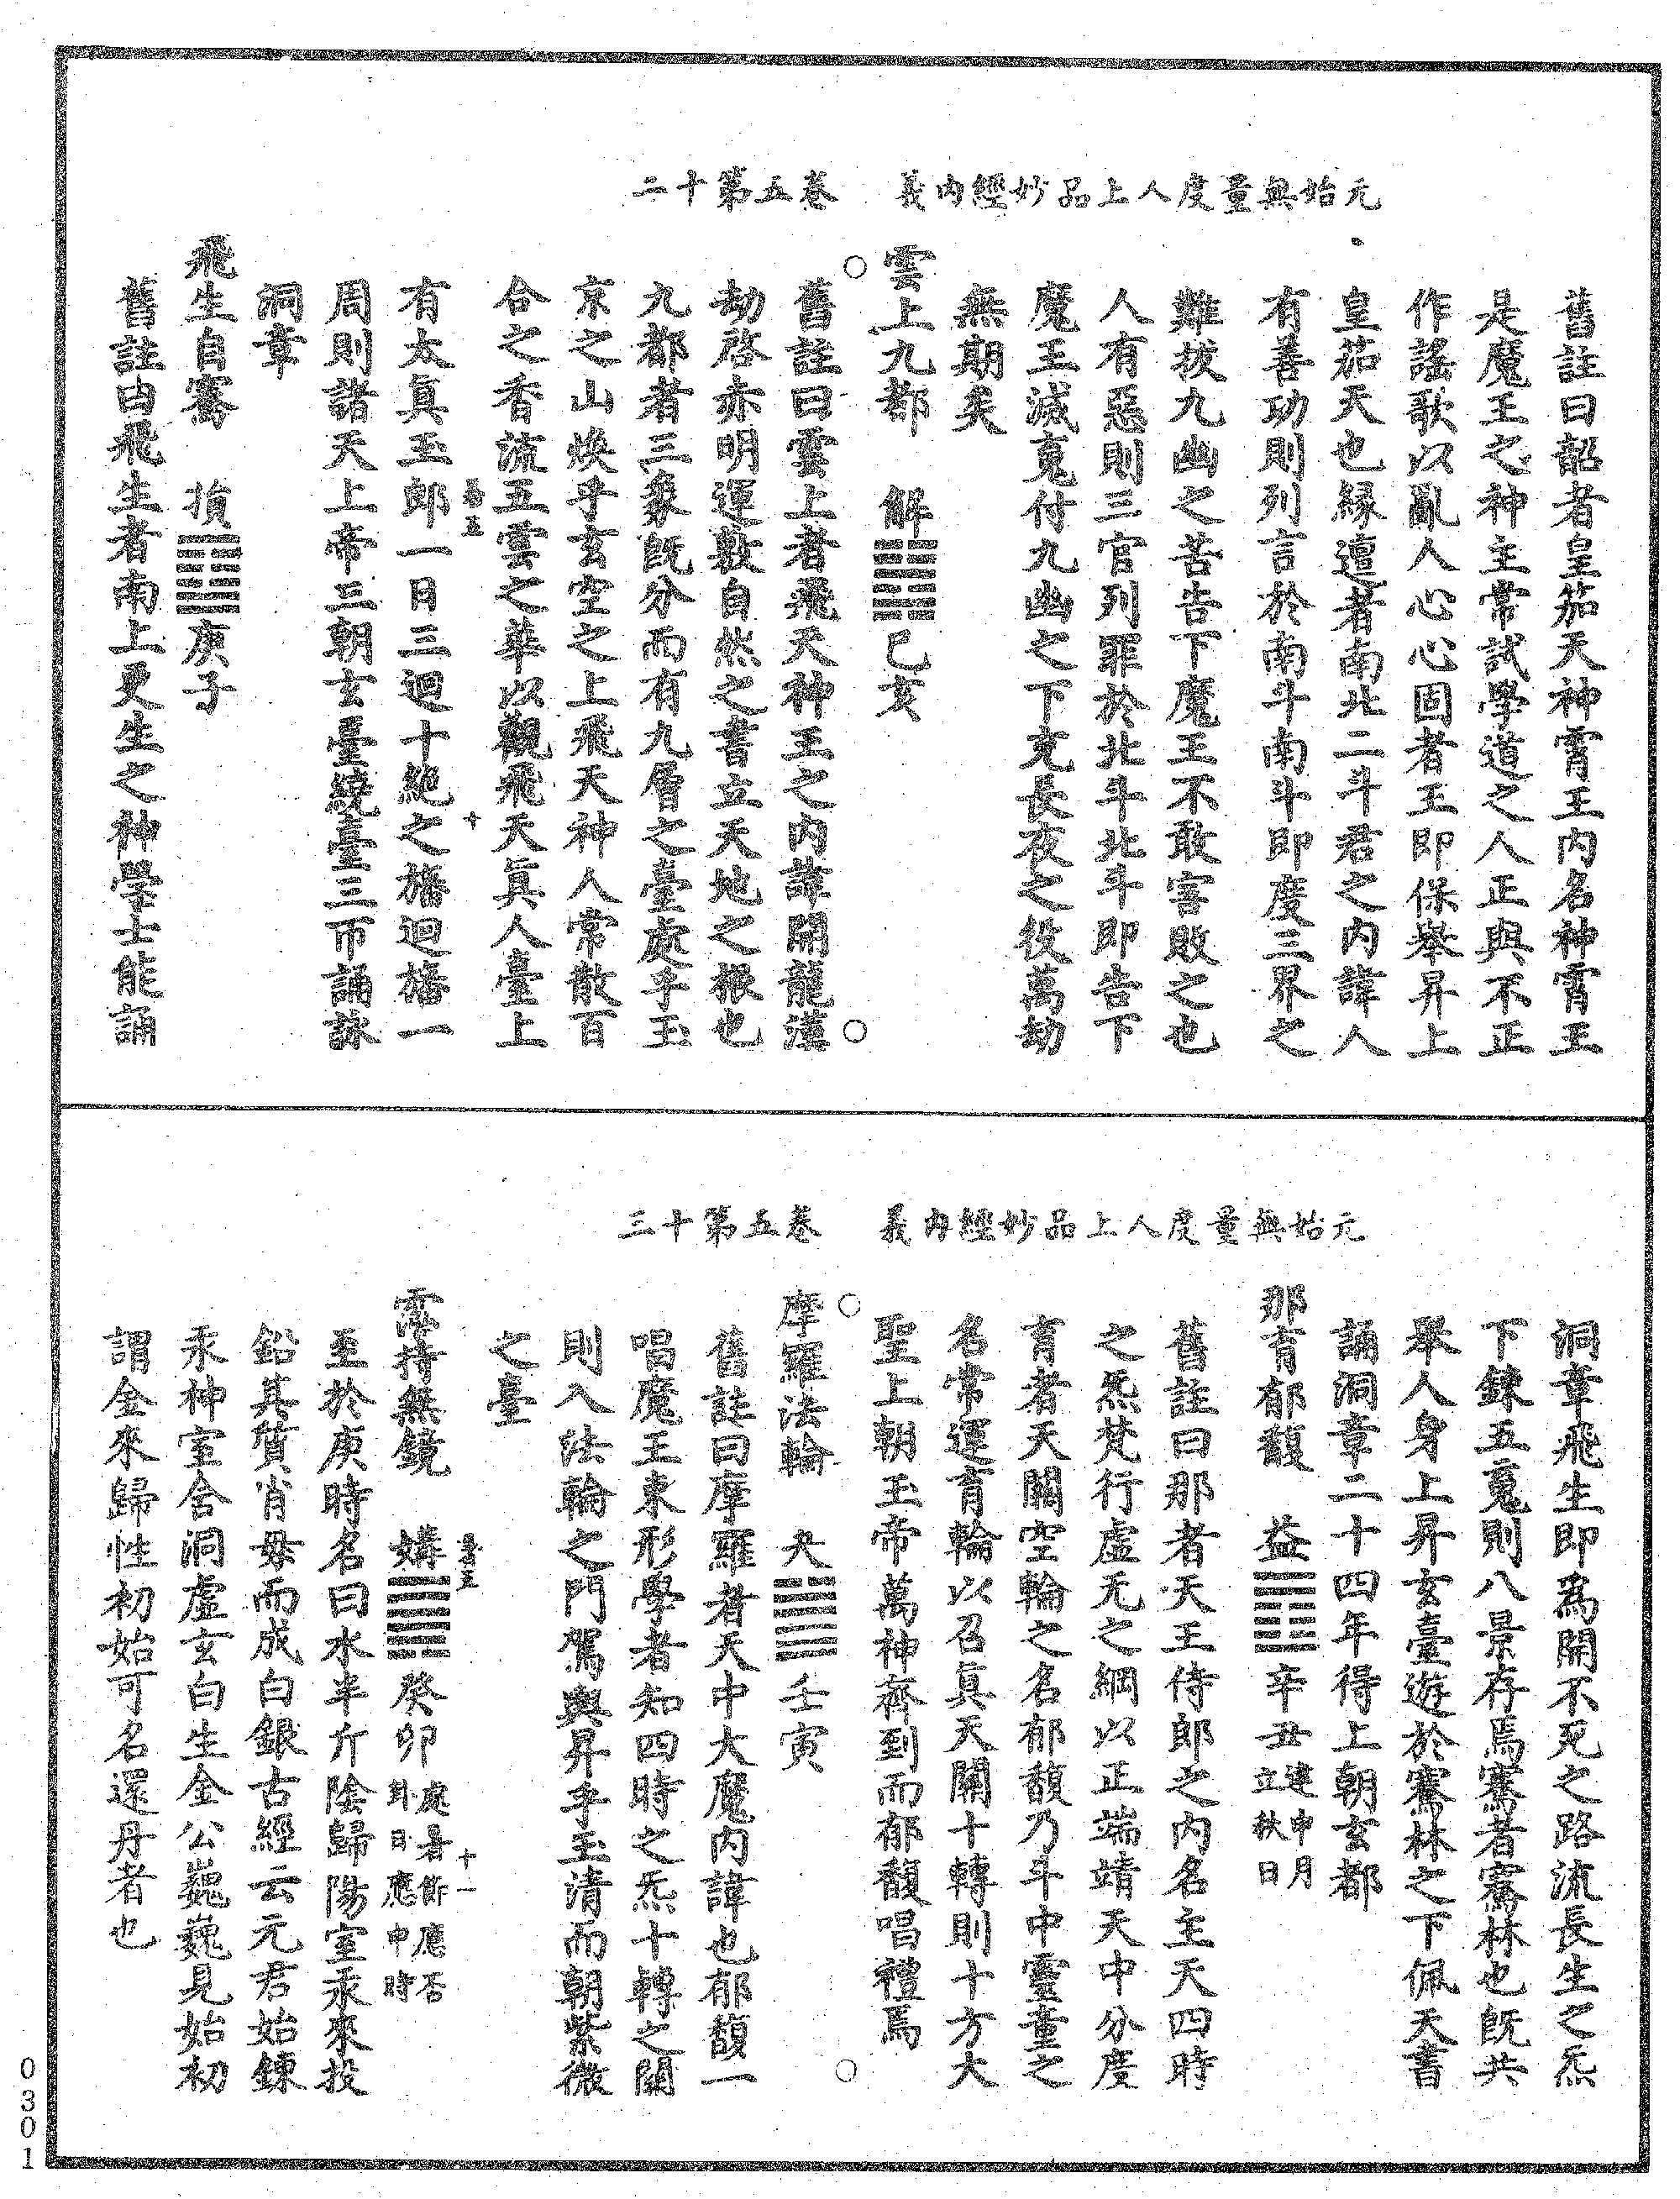 元始無量度人上品妙經內義　卷五第十二
舊註曰韶者皇茄天神霄王內名神霄王
是魔王之神主常試學道之人正與不正
作謠歌以亂人心心固者王即保舉昇上
皇茄天也緣邅者南北二斗君之內諱人
有善功則列言於南斗南斗即度三界之
難拔九幽之苦告下魔王不敢害敗之也
人有惡則三官列罪於北斗北斗即告下
魔王滅䰟付九幽之下充長夜之役萬劫
無期矣
雲上九都　解䷧己亥
舊註曰雲上者飛天神王之內諱開龍漢
劫啓赤明運數自然之書立天地之根也
九都者三象既分而有九層之臺處乎玉
京之山煥乎玄空之上飛天神人常散百
合之香流五雲之華以觀飛天真人臺上
卷五　十
有太真玉郎一日三迴十絕之旛迴旛一
周則諸天上帝三朝玄臺繞臺三帀誦詠
洞章
飛生自騫　損䷨庚子
舊註曰飛生者南上更生之神學士能誦
元始無量度人上品妙經內義　卷五第十三
洞章飛生即為開不死之路流長生之炁
下鍊五䰟則八景存焉騫者騫林也既共
舉人身上昇玄臺遊於騫林之下佩天書
誦洞章二十四年得上朝玄都
那育郁馥　益䷩辛丑建申月立秋日
舊註曰那者天王侍郎之內名主天四時
之炁梵行虛无之綱以正端靖天中分度
育者天關空輪之名郁馥乃斗中靈童之
名常運育輪以召真天關十轉則十方大
聖上朝玉帝萬神齊到而郁馥唱禮焉
摩羅法輪　夬䷪壬寅
舊註曰摩羅者天中大魔內諱也郁馥一
唱魔王束形學者知四時之炁十轉之關
則入法輪之門駕輿昇乎玉清而朝紫微
之臺
卷五　十一
霐持無鏡　姤䷫癸卯處暑節應否卦日應申時
至於庚時名曰水半斤陰歸陽室汞來投
鉛其質肖母而成白銀古經云元君始鍊
汞神室含洞虛玄白生金公巍巍見始初
謂金來歸性初始可名還丹者也
0301